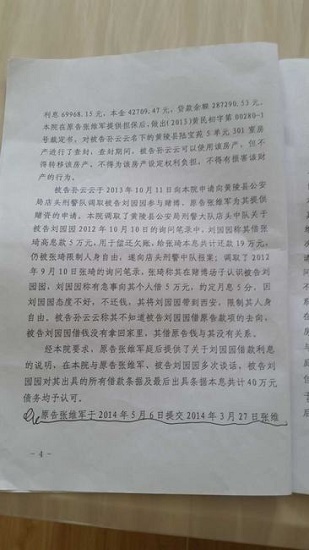 利息 69968.15元，本金 42709.47元，贷款余额 287290.53元。
本院在原告张维军提供担保后，做出(2013)黄民初字第00280-1
号裁定书，对被告孙云云名下的黄陵县陆宝苑5单元301室房
产进行了查封，查封期间，被告孙云云可以使用该房产，但不
得转移该房产、不得为该房产设定权利负担，不得有损害该财
产的行为。
被告孙云云于2013年10月11日向本院申请向黄陵县公安
局店头刑警队调取被告刘园园参与赌博、原告张维军为其提供
赌资的申请。本院调取了黄陵县公安局刑警大队店头中队关于
被告刘园园2012年10月10日的询问笔录中，刘园园称其借张
琦高息款5万元，用于偿还欠账，给张琦本息共计还款19万元，
仍被张琦限制人身自由，遂向店头刑警中队报案；调取了2012
年9月10日张琦的询问笔录，张琦称其在赌博场子认识被告刘
园园，刘园园称有急事向其个人借5万元，约定月息5分，因
刘园园态度不好，不还钱，其将刘园园带到西安，限制其人身
自由。被告孙云云称其不知道被告刘园园借原告款项的去向，
被告刘园园借钱没有拿回家里，其借原告钱与其没有关系。
经本院要求，原告张维军庭后提供了关于刘园园借款利息
的说明，在本院与原告张维军、被告刘园园多次谈话，被告刘
园园对其出具的所有借款条据及最后出具条据本息共计40万元
债务均予认可。
原告张维军于2014年5月6日提交2014年3月27日张维
- 4 -